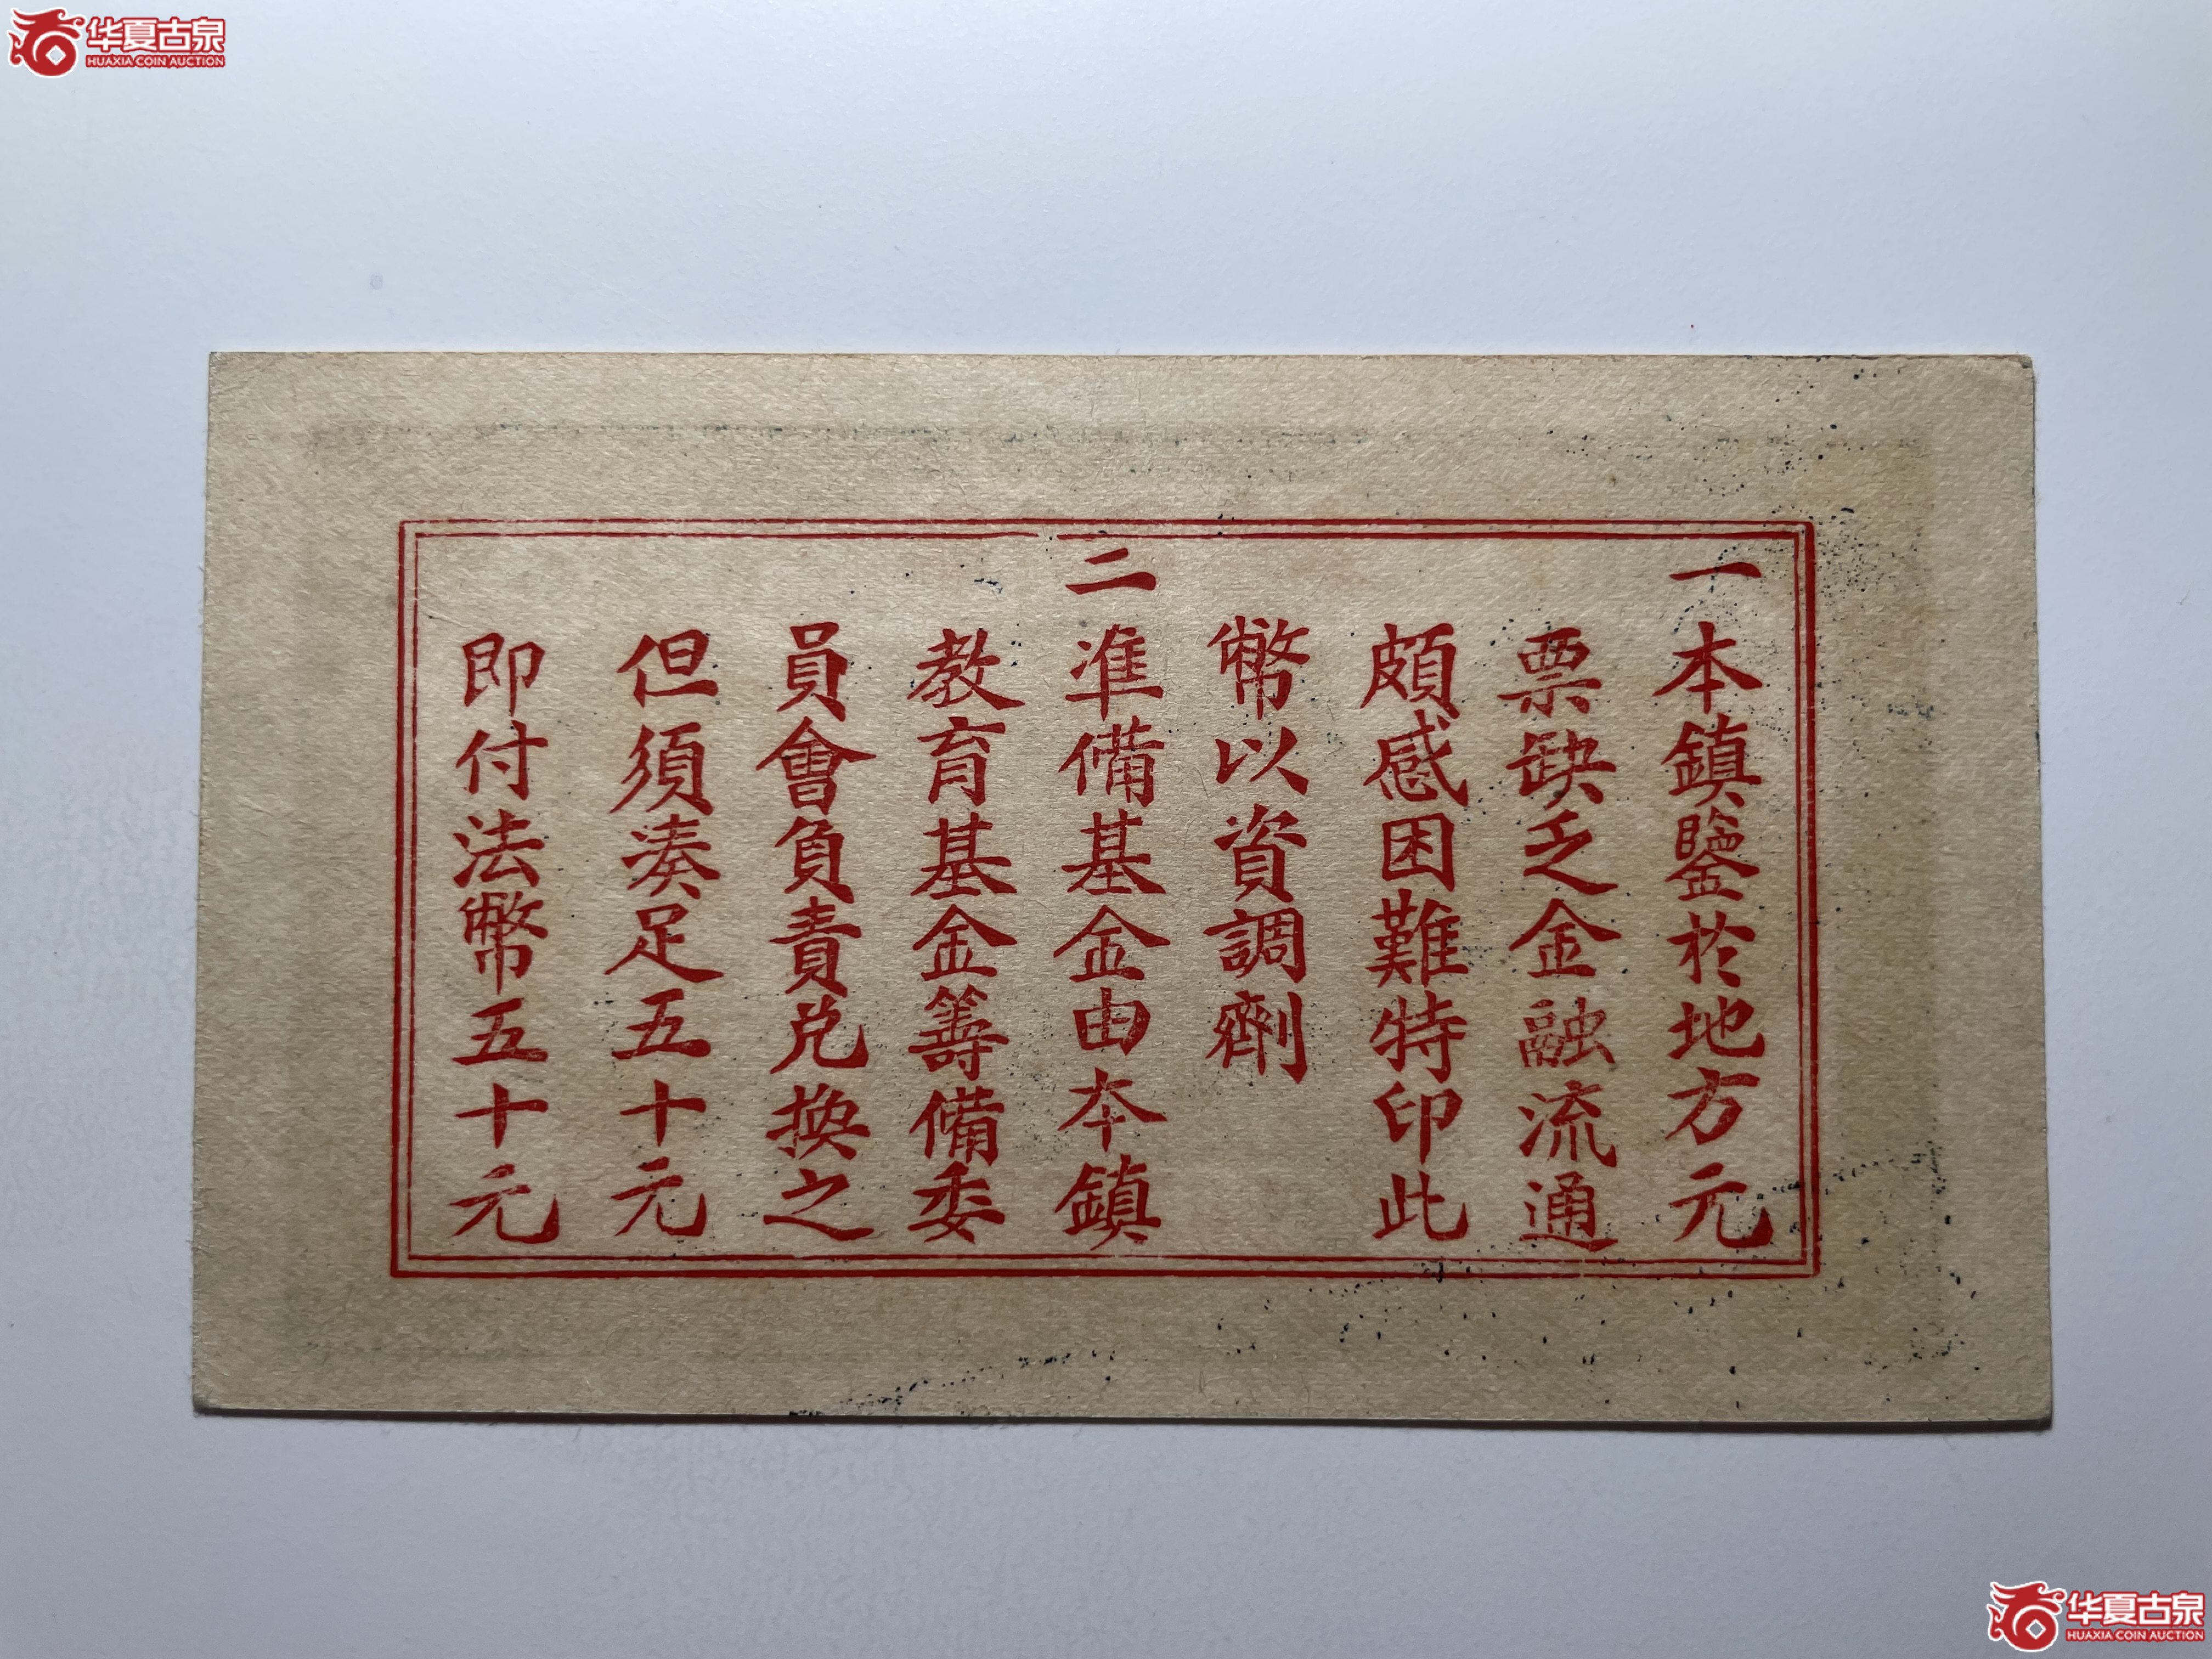 华夏古泉
HUAXIA COIN AUCTION
一本鎮鑒於地方元
票缺乏金融流通
頗感困難特印此
幣以資調劑
二準備基金由本鎮
教育基金籌備委
員會負責兌換之
但須湊足五十元
即付法幣五十元
华夏古泉
HUAXIA COIN AUCTION